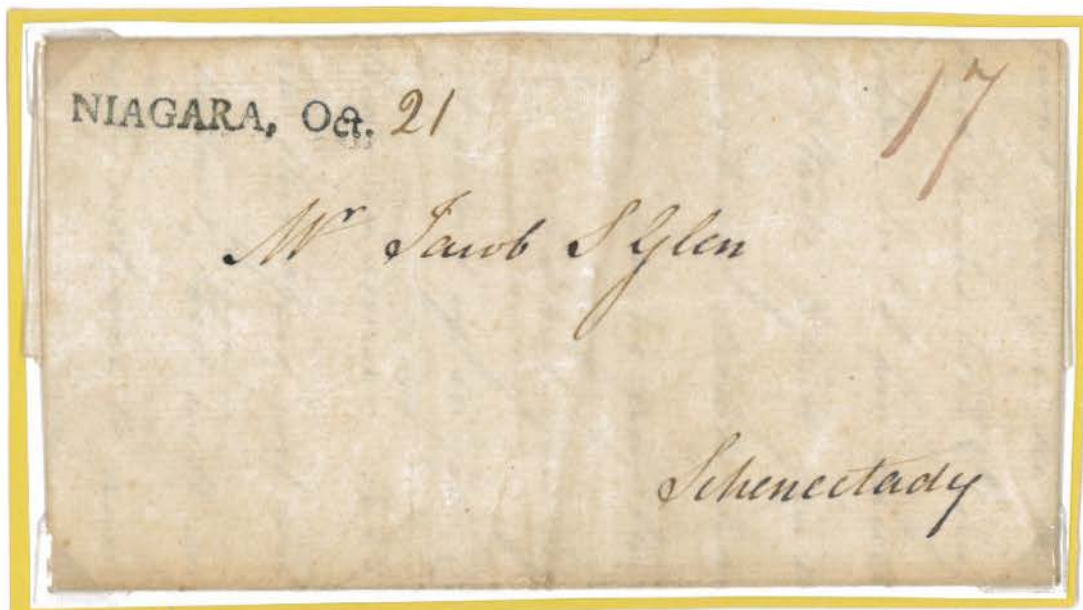 NIAGARA, Oct. 21
17
Mr Jacob S Glen
Schenectady